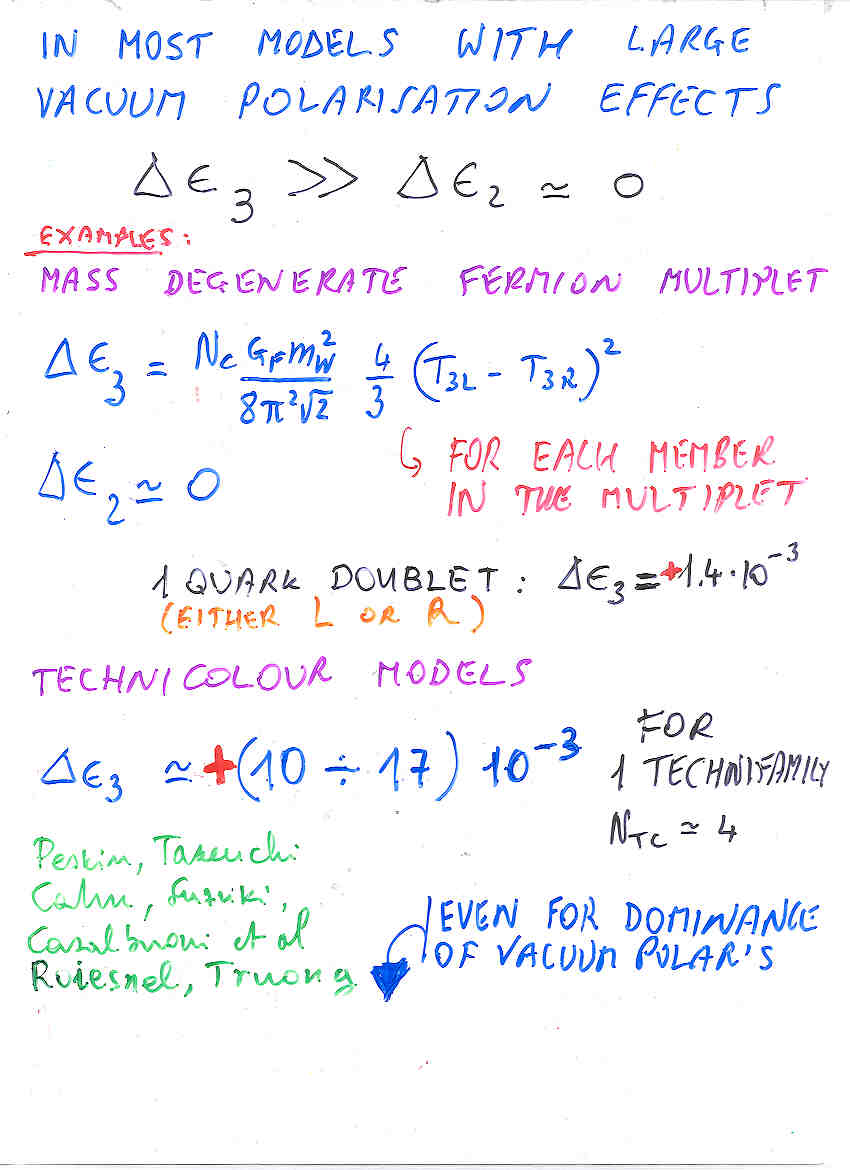 IN MOST MODELS WITH LARGE
VACUUM POLARISATION EFFECTS
Δϵ₃ >> Δϵ₂ ≃ 0
EXAMPLES:
MASS DEGENERATE FERMION MULTIPLET
Δϵ₃ = N_C G_F m_W² / 8π²√2 4/3 (T₃L - T₃R)²
↳ FOR EACH MEMBER
IN THE MULTIPLET
Δϵ₂ ≃ 0
1 QUARK DOUBLET : Δϵ₃ = +1.4·10⁻³
(EITHER L OR R)
TECHNICOLOUR MODELS
Δϵ₃ ≃ +(10 ÷ 17) 10⁻³
FOR
1 TECHNIFAMILY
N_TC ≃ 4
Peskin, Takeuchi
Cahn, Suzuki,
Casalbuoni et al
Roiesnel, Truong
EVEN FOR DOMINANCE
OF VACUUM POLAR'S